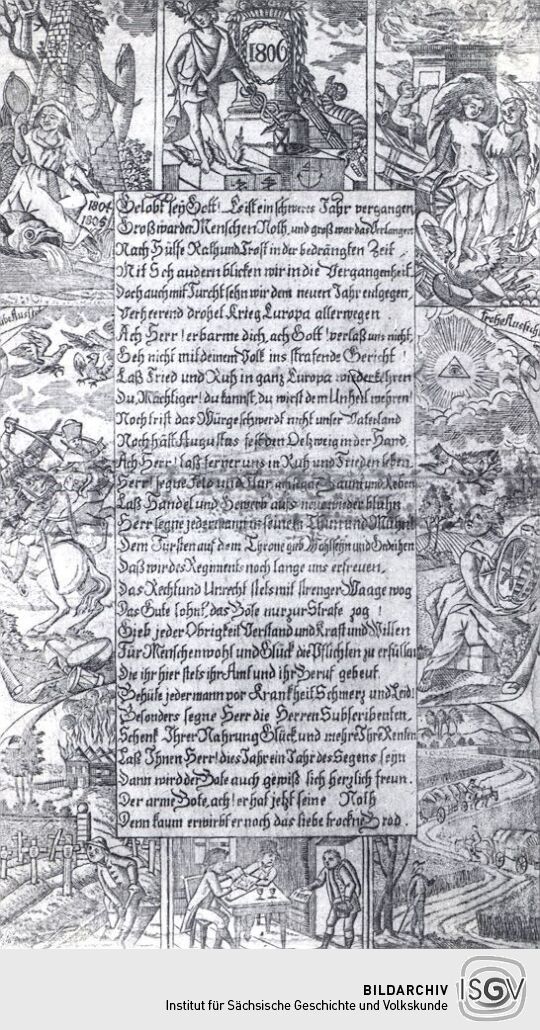 1806
1804
1805
Gelobt sey Gott! Es ist ein schweres Jahr vergangen
Groß war der Menschen Noth, und groß war das Verlangen
Nach Hülfe Rath und Trost in der bedrängten Zeit,
Mit Schaudern blicken wir in die Vergangenheit.
Doch auch mit Furcht sehn wir dem neuen Jahr entgegen,
Verheerend drohet Krieg Europa allerwegen.
Ach Herr! erbarme dich, ach Gott! verlaß uns nicht,
Geh nicht mit deinem Volk ins strafende Gericht!
Laß Fried und Ruh in ganz Europa wiederkehren
Du, Mächtiger! du kannst, du wirst dem Unheil wehren!
Noch trist das Würgeschwerdt nicht unser Vaterland
Noch hält Augustus fest den Oelzweig in der Hand,
Ach Herr! laß ferner uns in Ruh und Frieden leben.
Herr! segne Feld und Flur Baum und Reben
Laß Handel und Gewerb aufs neue wieder blühn
Herr segne jedermann in seinem Thun und Mühn
Dem Fürsten auf dem Throne gieb Wohlsehn und Gedeihen
Daß wir des Regiments noch lange uns erfreuen,
Das Recht und Unrecht stets mit strenger Waage wog
Das Gute lohnt, das Böse nur zur Strafe zog!
Gieb jeder Obrigkeit Verstand und Kraft und Willen
Für Menschenwohl und Glück die Pflichten zu erfüllen
Die ihr hier stets ihr Amt und ihr Beruf gebeut.
Behüte jedermann vor Krankheit Schmerz und Leid!
Besonders segne Herr die Herren Subscribenten,
Schenk Ihrer Nahrung Glück und mehre Ihr Renten
Laß Ihnen Herr! dies Jahr ein Jahr des Segens seyn
Dann wird der Bote auch gewiß sich herzlich freun.
Der arme Bote, ach! er hat jetzt seine Noth
Denn kaum erwirbt er noch das liebe trockne Brod.
BILDARCHIV
Institut für Sächsische Geschichte und Volkskunde
ISGV